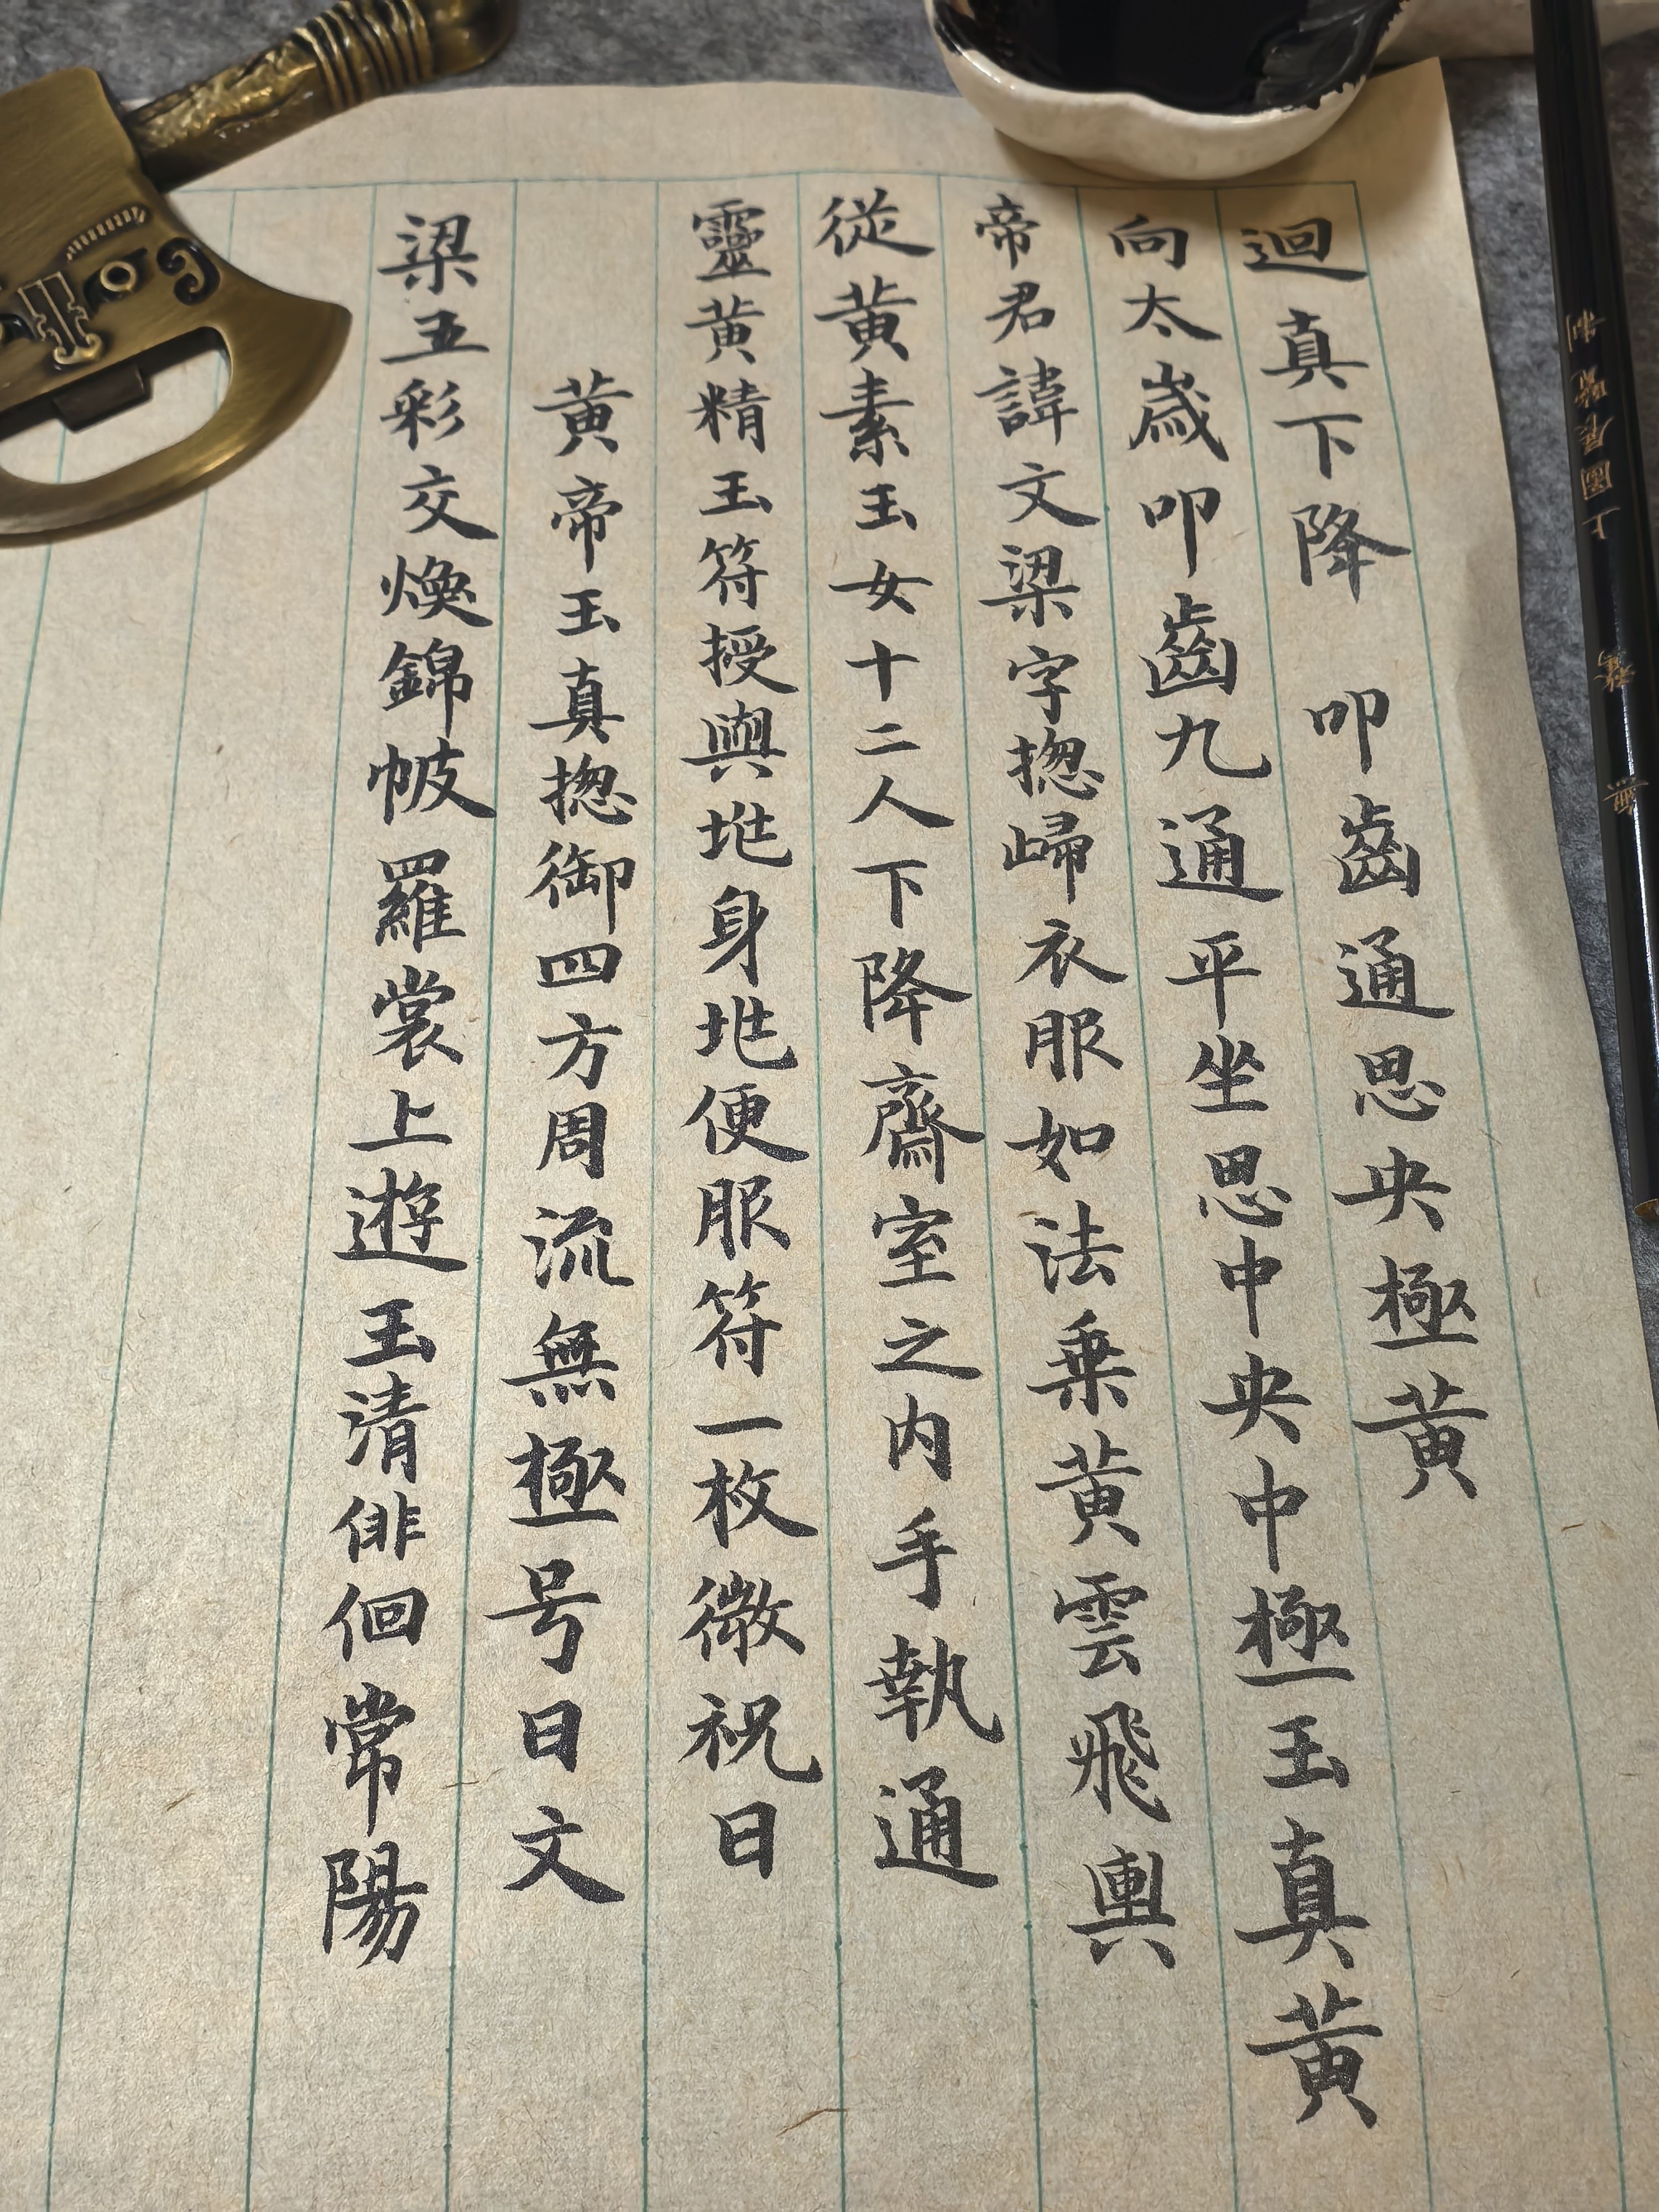 迴真下降 叩齒通思央極黃
向太歲叩齒九通平坐思中央中極玉真黃
帝君諱文梁字揔歸衣服如法乗黃雲飛輿
從黃素玉女十二人下降齋室之内手執通
靈黃精玉符授與兆身兆便服符一枚微祝曰
黃帝玉真揔御四方周流無極号曰文
梁五彩交煥錦帔羅裳上遊玉清俳佪常陽